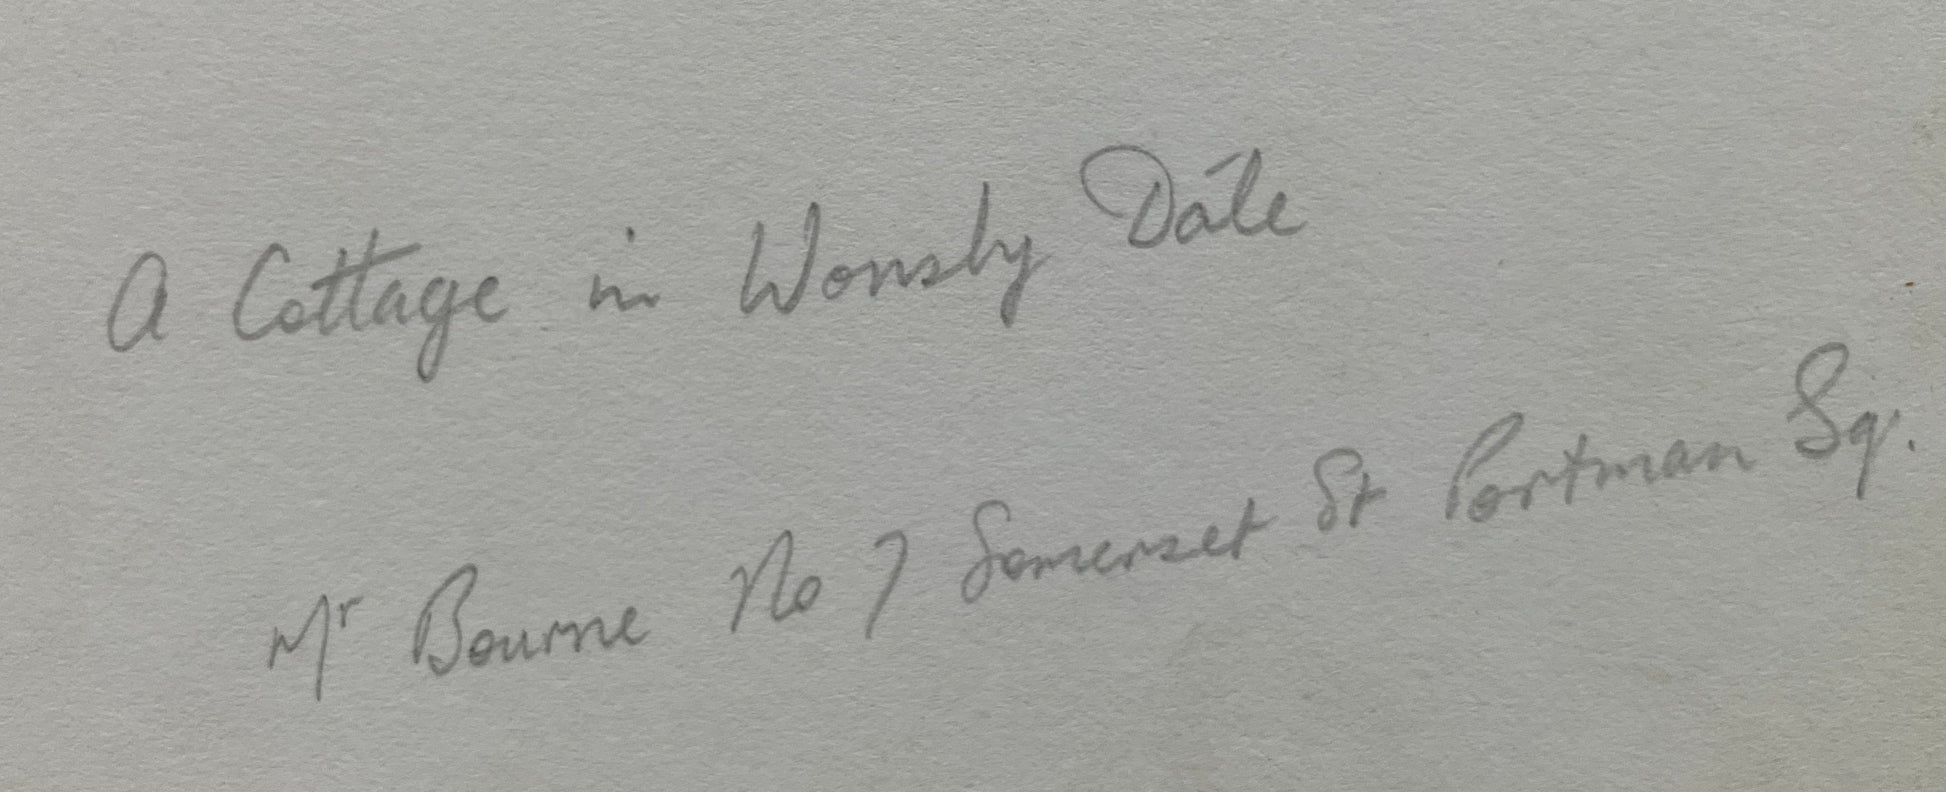 A Cottage in Wonsby Dale
Mr Bourne No 7 Somerset St Portman Sq.